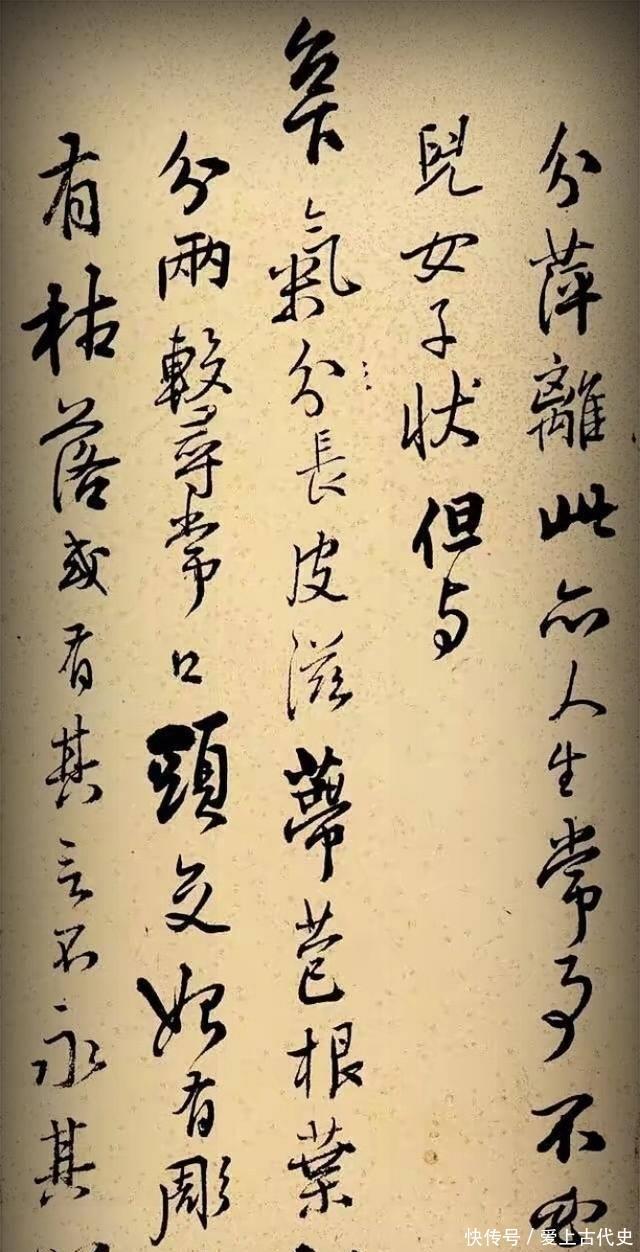 分萍離此亦人生常事不
兒女子状但与
台下氣分長皮滋蔕苞根葉
分兩較尋常口頭交始有彫
有枯落或有其言不永其
快传号 / 爱上古代史